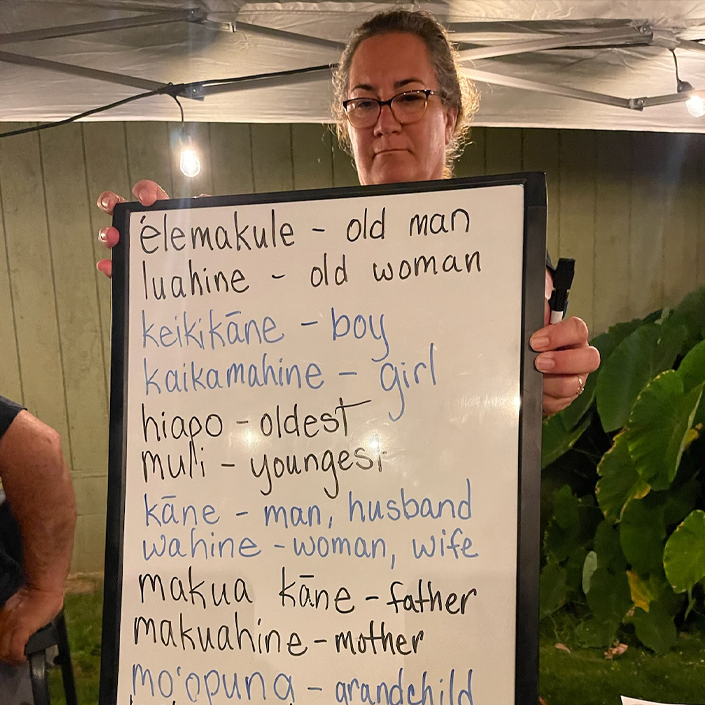 ʻelemakule - old man
luahine - old woman
keikikāne - boy
kaikamahine - girl
hiapo - oldest
muli - youngest
kāne - man, husband
wahine - woman, wife
makua kāne - father
makuahine - mother
moʻopuna - grandchild